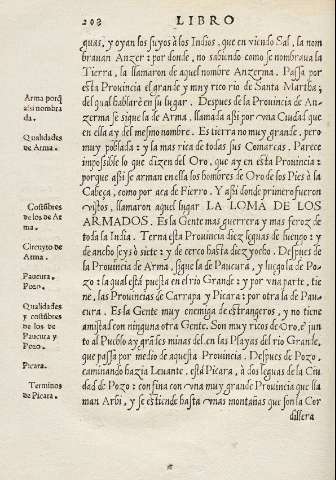 208 LIBRO
guas, y oyan los suyos à los Indios, que en viendo Sal, la nom
bravan Anzer: por donde, no sabiendo como se nombrava la
Tierra, la llamaron de aquel nombre Anzerma. Passa por
esta Provincia el grande y muy rico rio de Santa Martha;
del qual hablarè en su lugar. Despues de la Provincia de An-
zerma se sigue la de Arma, llamada assi por una Ciudad que
en ella ay del mesmo nombre. Es tierra no muy grande, pero
muy poblada: y la mas rica de todas sus Comarcas. Parece
impossible lo que dizen del Oro, que ay en esta Provincia:
porque assi se arman en ella los hombres de Oro de los Pies à la
Cabeça, como por aca de Fierro. Y assi donde primero fueron
vistos, llamaron aquel lugar LA LOMA DE LOS
ARMADOS. Es la Gente mas guerrera y mas feroz de
toda la India. Terna esta Provincia diez leguas de luengo: y
de ancho seys ò siete: y de cerco hasta diez y ocho. Despues de
la Provincia de Arma, sigue la de Paucura, y luego la de Po-
zo: la qual està puesta en el rio Grande: y por una parte, tie
ne, las Provincias de Carrapa y Picara: por otra la de Pau-
cura. Es la Gente muy enemiga de estrangeros, y no tiene
amistad con ninguna otra Gente. Son muy ricos de Oro, è jun
to al Pueblo ay grandes minas del. en las Playas del rio Grande,
que passa por medio de aquesta Provincia. Despues de Pozo,
caminando hazia Levante, està Picara, à dos leguas de la Ciu
dad de Pozo: confina con una muy grande Provincia que lla
man Arbi, y se estiende hasta unas montañas que son la Cor
dillera
Arma porq
assi nombra
da.
Qualidades
de Arma.
Costũbres
de los de Ar
ma.
Circuyto de
Arma.
Paucura.
Pozo.
Qualidades
y costũbres
de los de
Paucura y
Pozo.
Picara.
Terminos
de Picara.